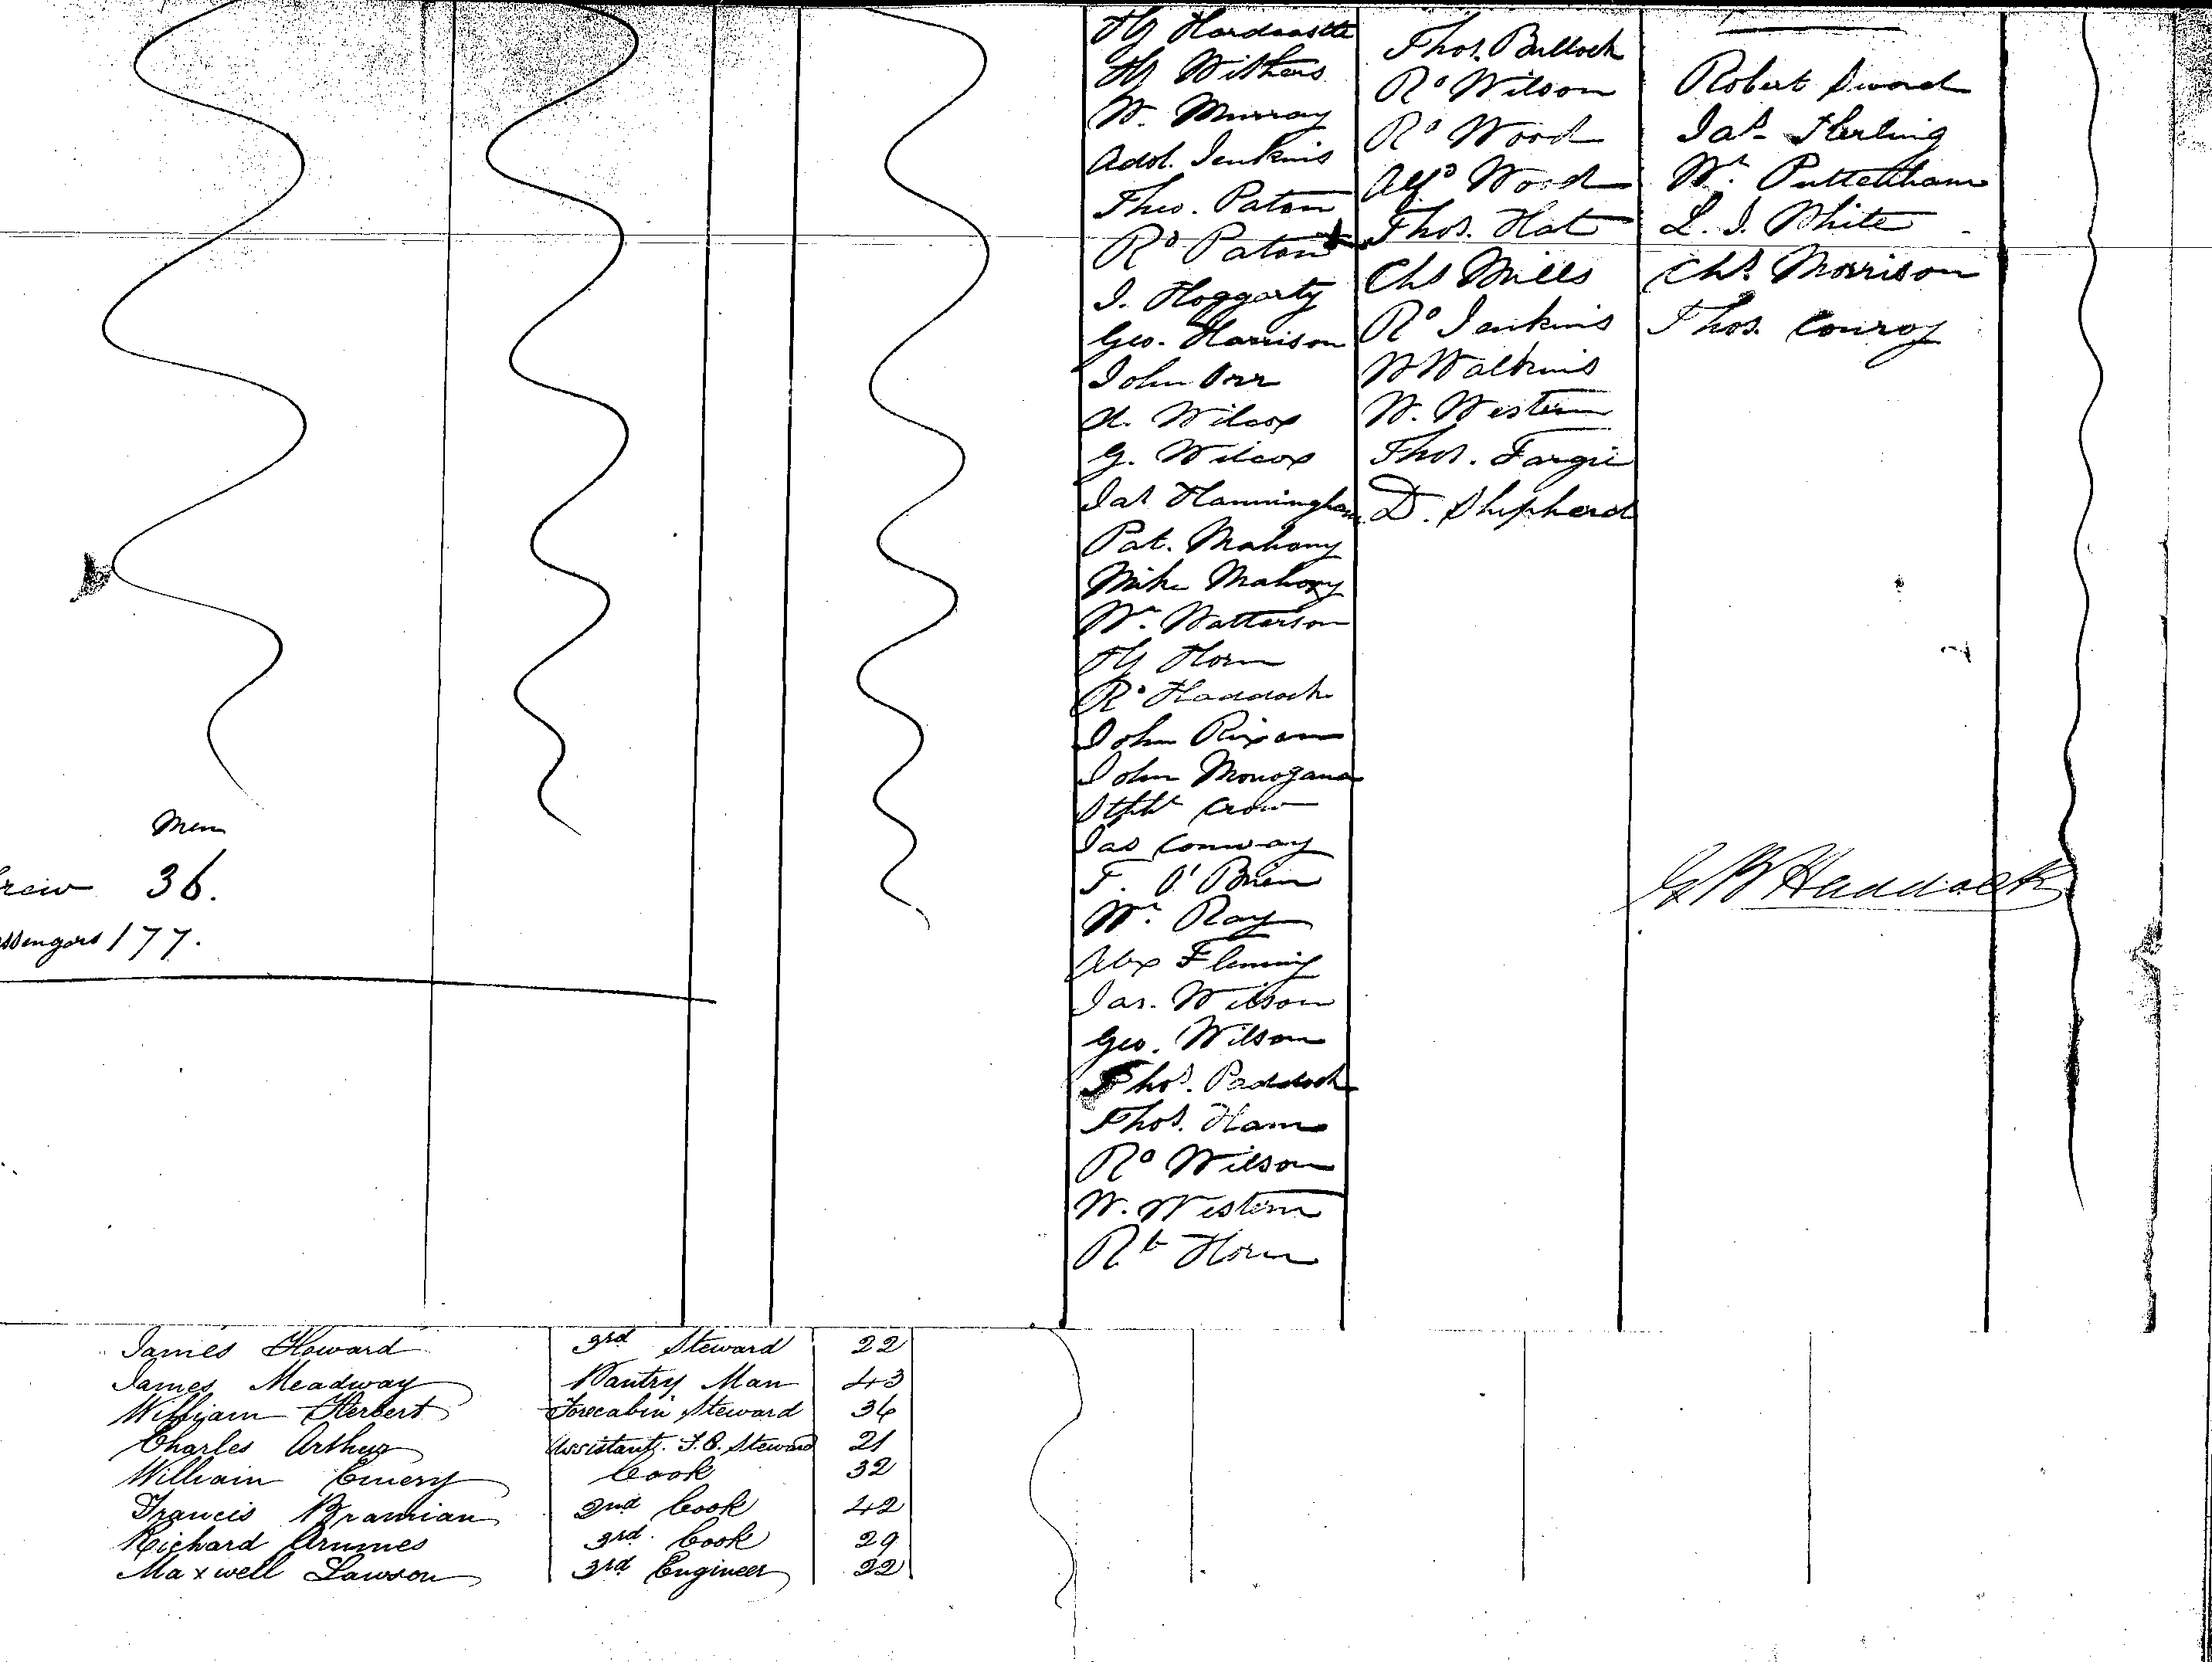 Men
Crew 36.
Passengers 177.
Hy Hardcastle
Hy Withers
W. Murray
Adol. Jenkins
Theo. Paton
Rd Paton
J. Hoggarty
Geo. Harrison
John Orr
H. Wilcox
G. Wilcox
Jas Hanningham
Pat. Mahony
Mike Mahony
Wm Watterson
Hy Horn
Rd Haddock
John Rixon
John
Stphn Crow
Jas Conway
T. O'Brien
Wm Ray
Alex Fleming
Jas. Wilson
Geo. Wilson
Thos. Paddock
Thos. Ham
Rd Wilson
W. Western
Rt Horn
Thos. Bullock
Rd Wilson
Rd Wood
Alfd Wood
Thos. Hat
Chs Mills
Rd Jenkins
W Watkins
W. Western
Thos. Fargie
D. Shepherd
Robert Sword
Jas Sterling
Wm Puttenham
L. J. White
Chs. Morrison
Thos. Conroy
Haddock
James Howard 3rd Steward 22
James Meadway Pantry Man 43
William Herbert Forecabin Steward 36
Charles Arthur Assistant F.C. Steward 21
William Emery Cook 32
Francis Bramian 2nd Cook 42
Richard 3rd Cook 29
Maxwell Lawson 3rd Engineer 22